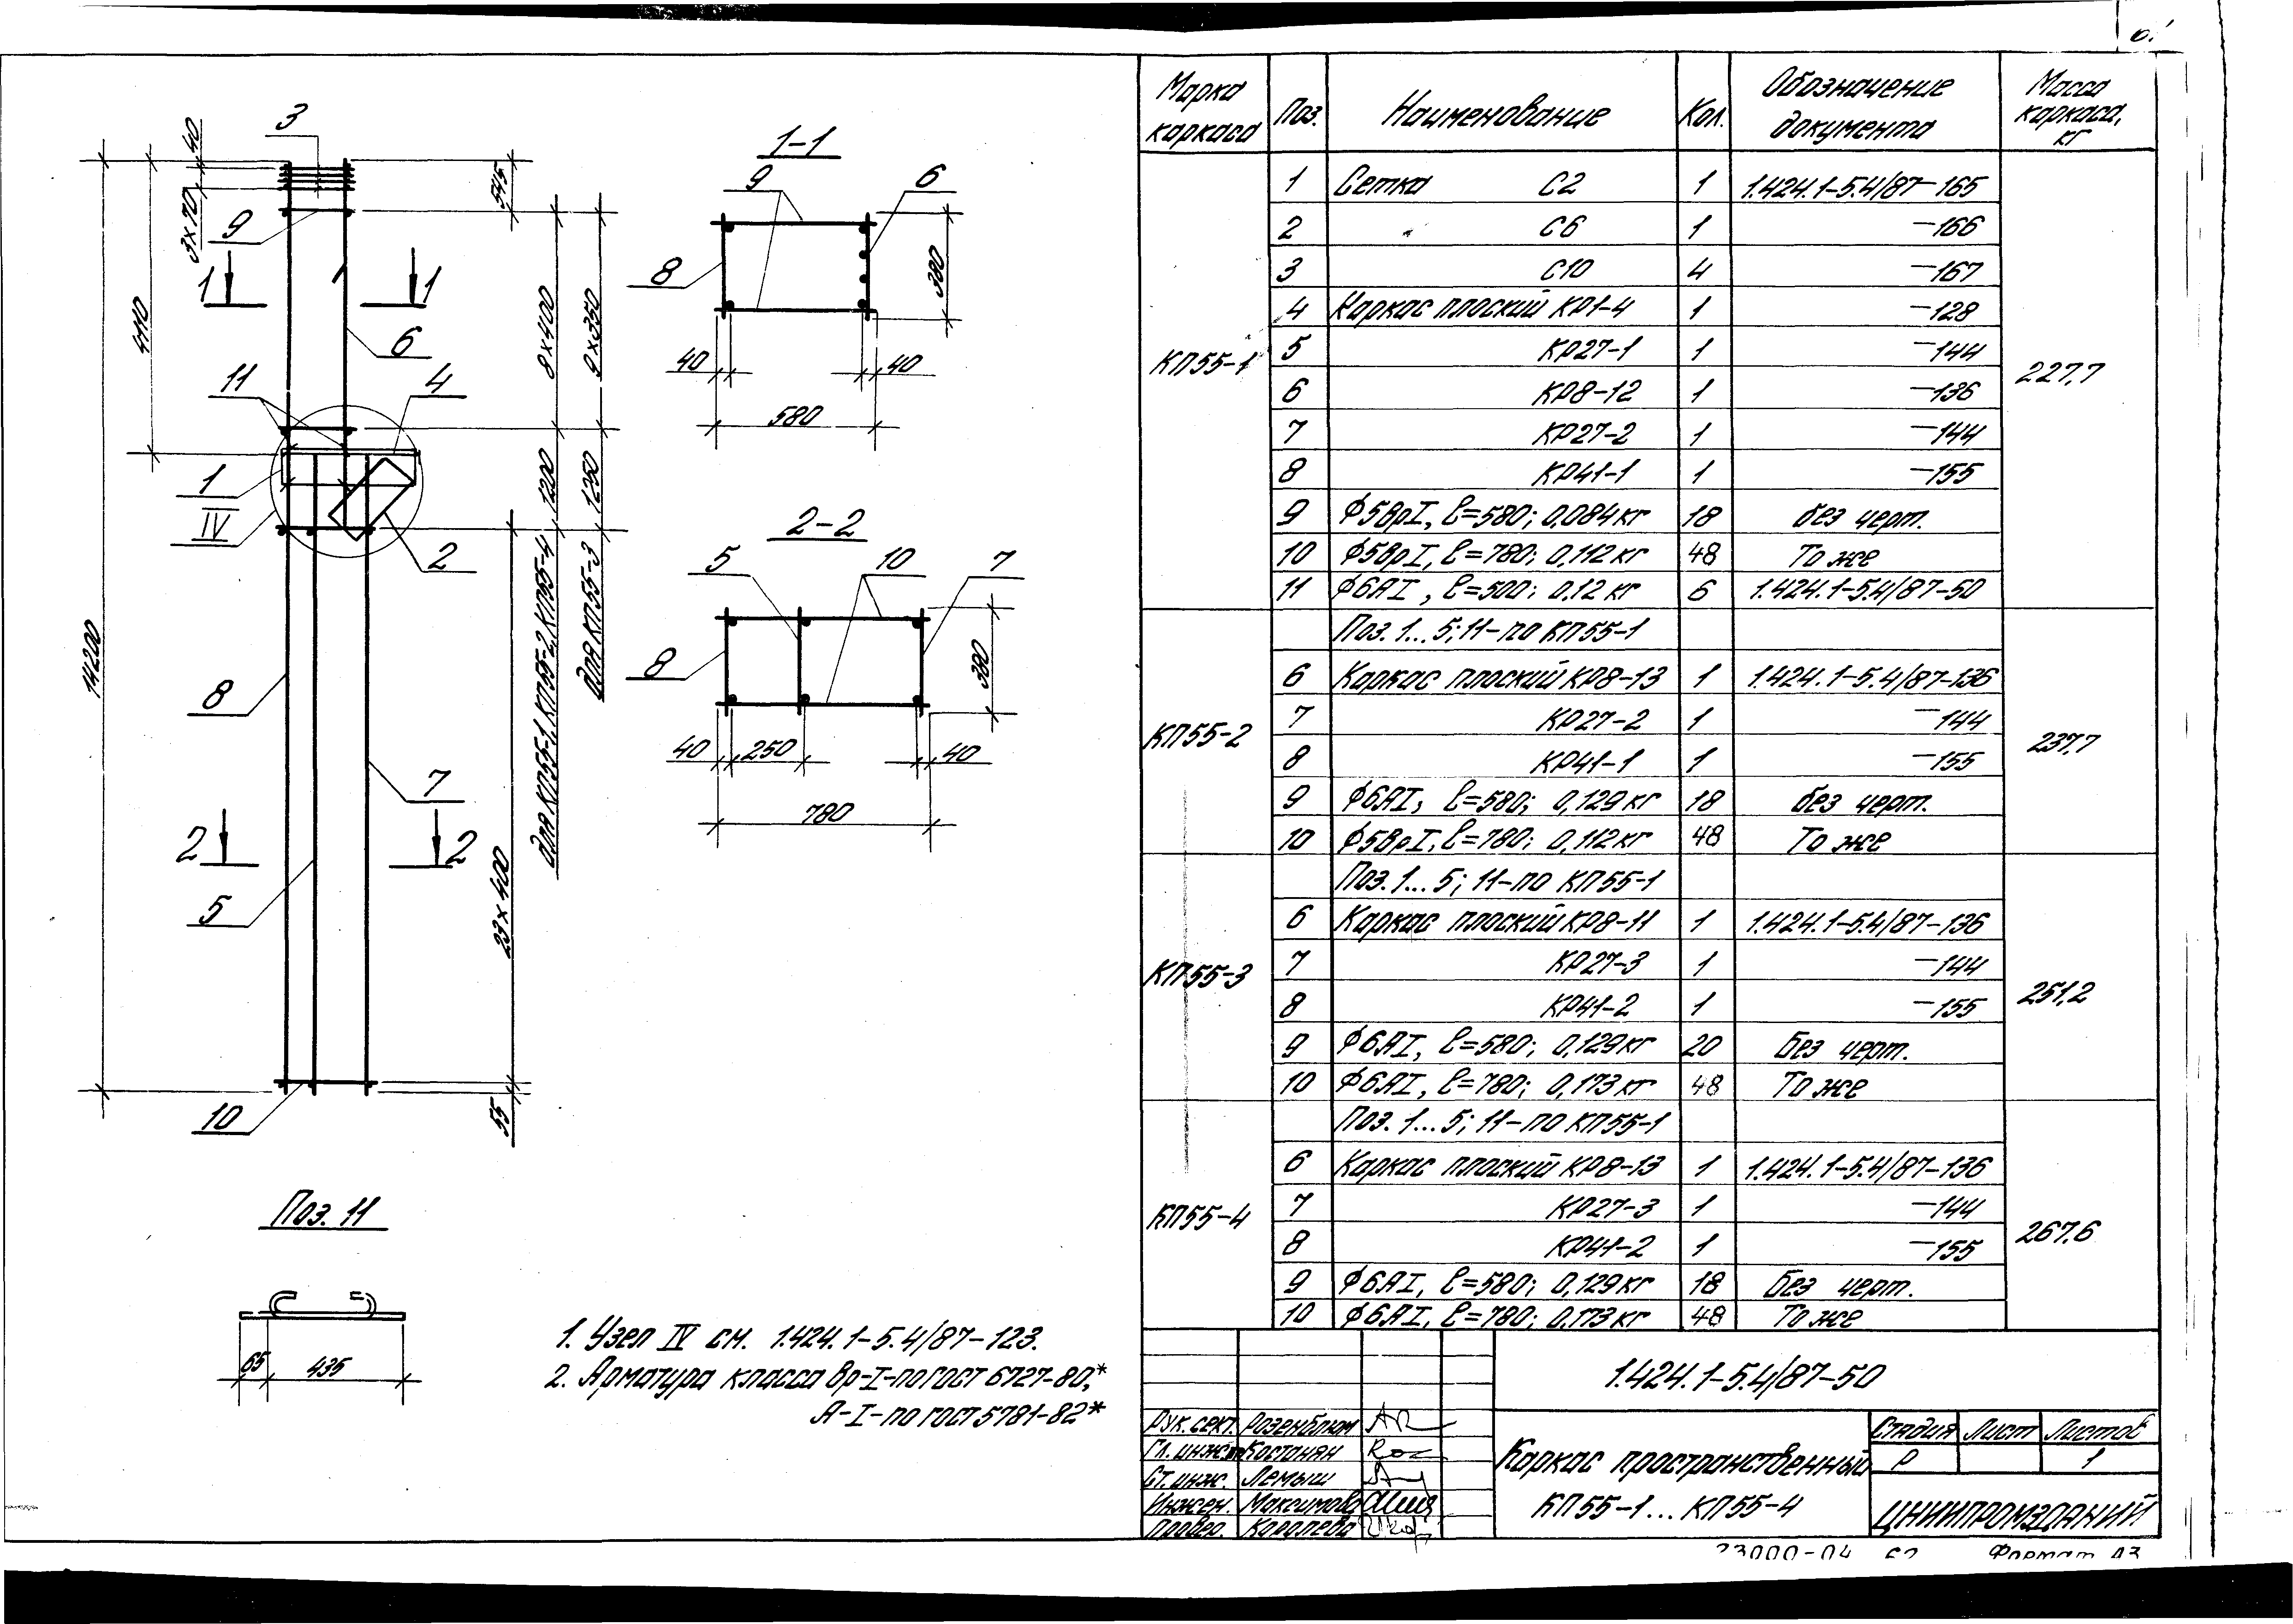 Марка каркаса | Поз. | Наименование | Кол. | Обозначение документа | Масса каркаса, кг
КП55-1 | 227,7
1 | Сетка С2 | 1 | 1.424.1-5.4/87-165
2 | С6 | 1 | -166
3 | С10 | 4 | -167
4 | Каркас плоский КР1-4 | 1 | -128
5 | КР27-1 | 1 | -144
6 | КР8-12 | 1 | -136
7 | КР27-2 | 1 | -144
8 | КР41-1 | 1 | -155
9 | ф5ВрI, l=580; 0,084кг | 18 | без черт.
10 | ф5ВрI, l=780; 0,112кг | 48 | То же
11 | ф6АI, l=500; 0,12 кг | 6 | 1.424.1-5.4/87-50
КП55-2 | 237,7
Поз. 1...5; 11-по КП55-1
6 | Каркас плоский КР8-13 | 1 | 1.424.1-5.4/87-136
7 | КР27-2 | 1 | -144
8 | КР41-1 | 1 | -155
9 | ф6АI, l=580; 0,129кг | 18 | без черт.
10 | ф5ВрI, l=780; 0,112кг | 48 | То же
КП55-3 | 251,2
Поз. 1...5; 11-по КП55-1
6 | Каркас плоский КР8-11 | 1 | 1.424.1-5.4/87-136
7 | КР27-3 | 1 | -144
8 | КР41-2 | 1 | -155
9 | ф6АI, l=580; 0,129кг | 20 | Без черт.
10 | ф6АI, l=780; 0,173кг | 48 | То же
КП55-4 | 267,6
Поз. 1...5; 11-по КП55-1
6 | Каркас плоский КР8-13 | 1 | 1.424.1-5.4/87-136
7 | КР27-3 | 1 | -144
8 | КР41-2 | 1 | -155
9 | ф6АI, l=580; 0,129кг | 18 | Без черт.
10 | ф6АI, l=780; 0,173кг | 48 | То же
3
40
3×70
9
545
1 1
4110
6
11
4
1
IV
2
8×400
9×350
1200
1250
для КП55-1, КП55-2, КП55-4
для КП55-3
14200
8
7
2 2
5
23×400
10
55
1-1
9
6
8
380
40
40
580
2-2
5
10
7
8
380
40
250
40
780
Поз. 11
65
435
1. Узел IV см. 1.424.1-5.4/87-123.
2. Арматура класса Вр-I-по ГОСТ 6727-80,*
А-I-по ГОСТ 5781-82*
1.424.1-5.4/87-50
Рук. сект. Розенблюм
Гл. инж. Костанян
Ст. инж. Лемыш
Инжен. Максимова
Провер. Королева
Каркас пространственный
КП55-1...КП55-4
Стадия | Лист | Листов
Р | 1
ЦНИИПРОМЗДАНИЙ
23000-04 62 Формат А3